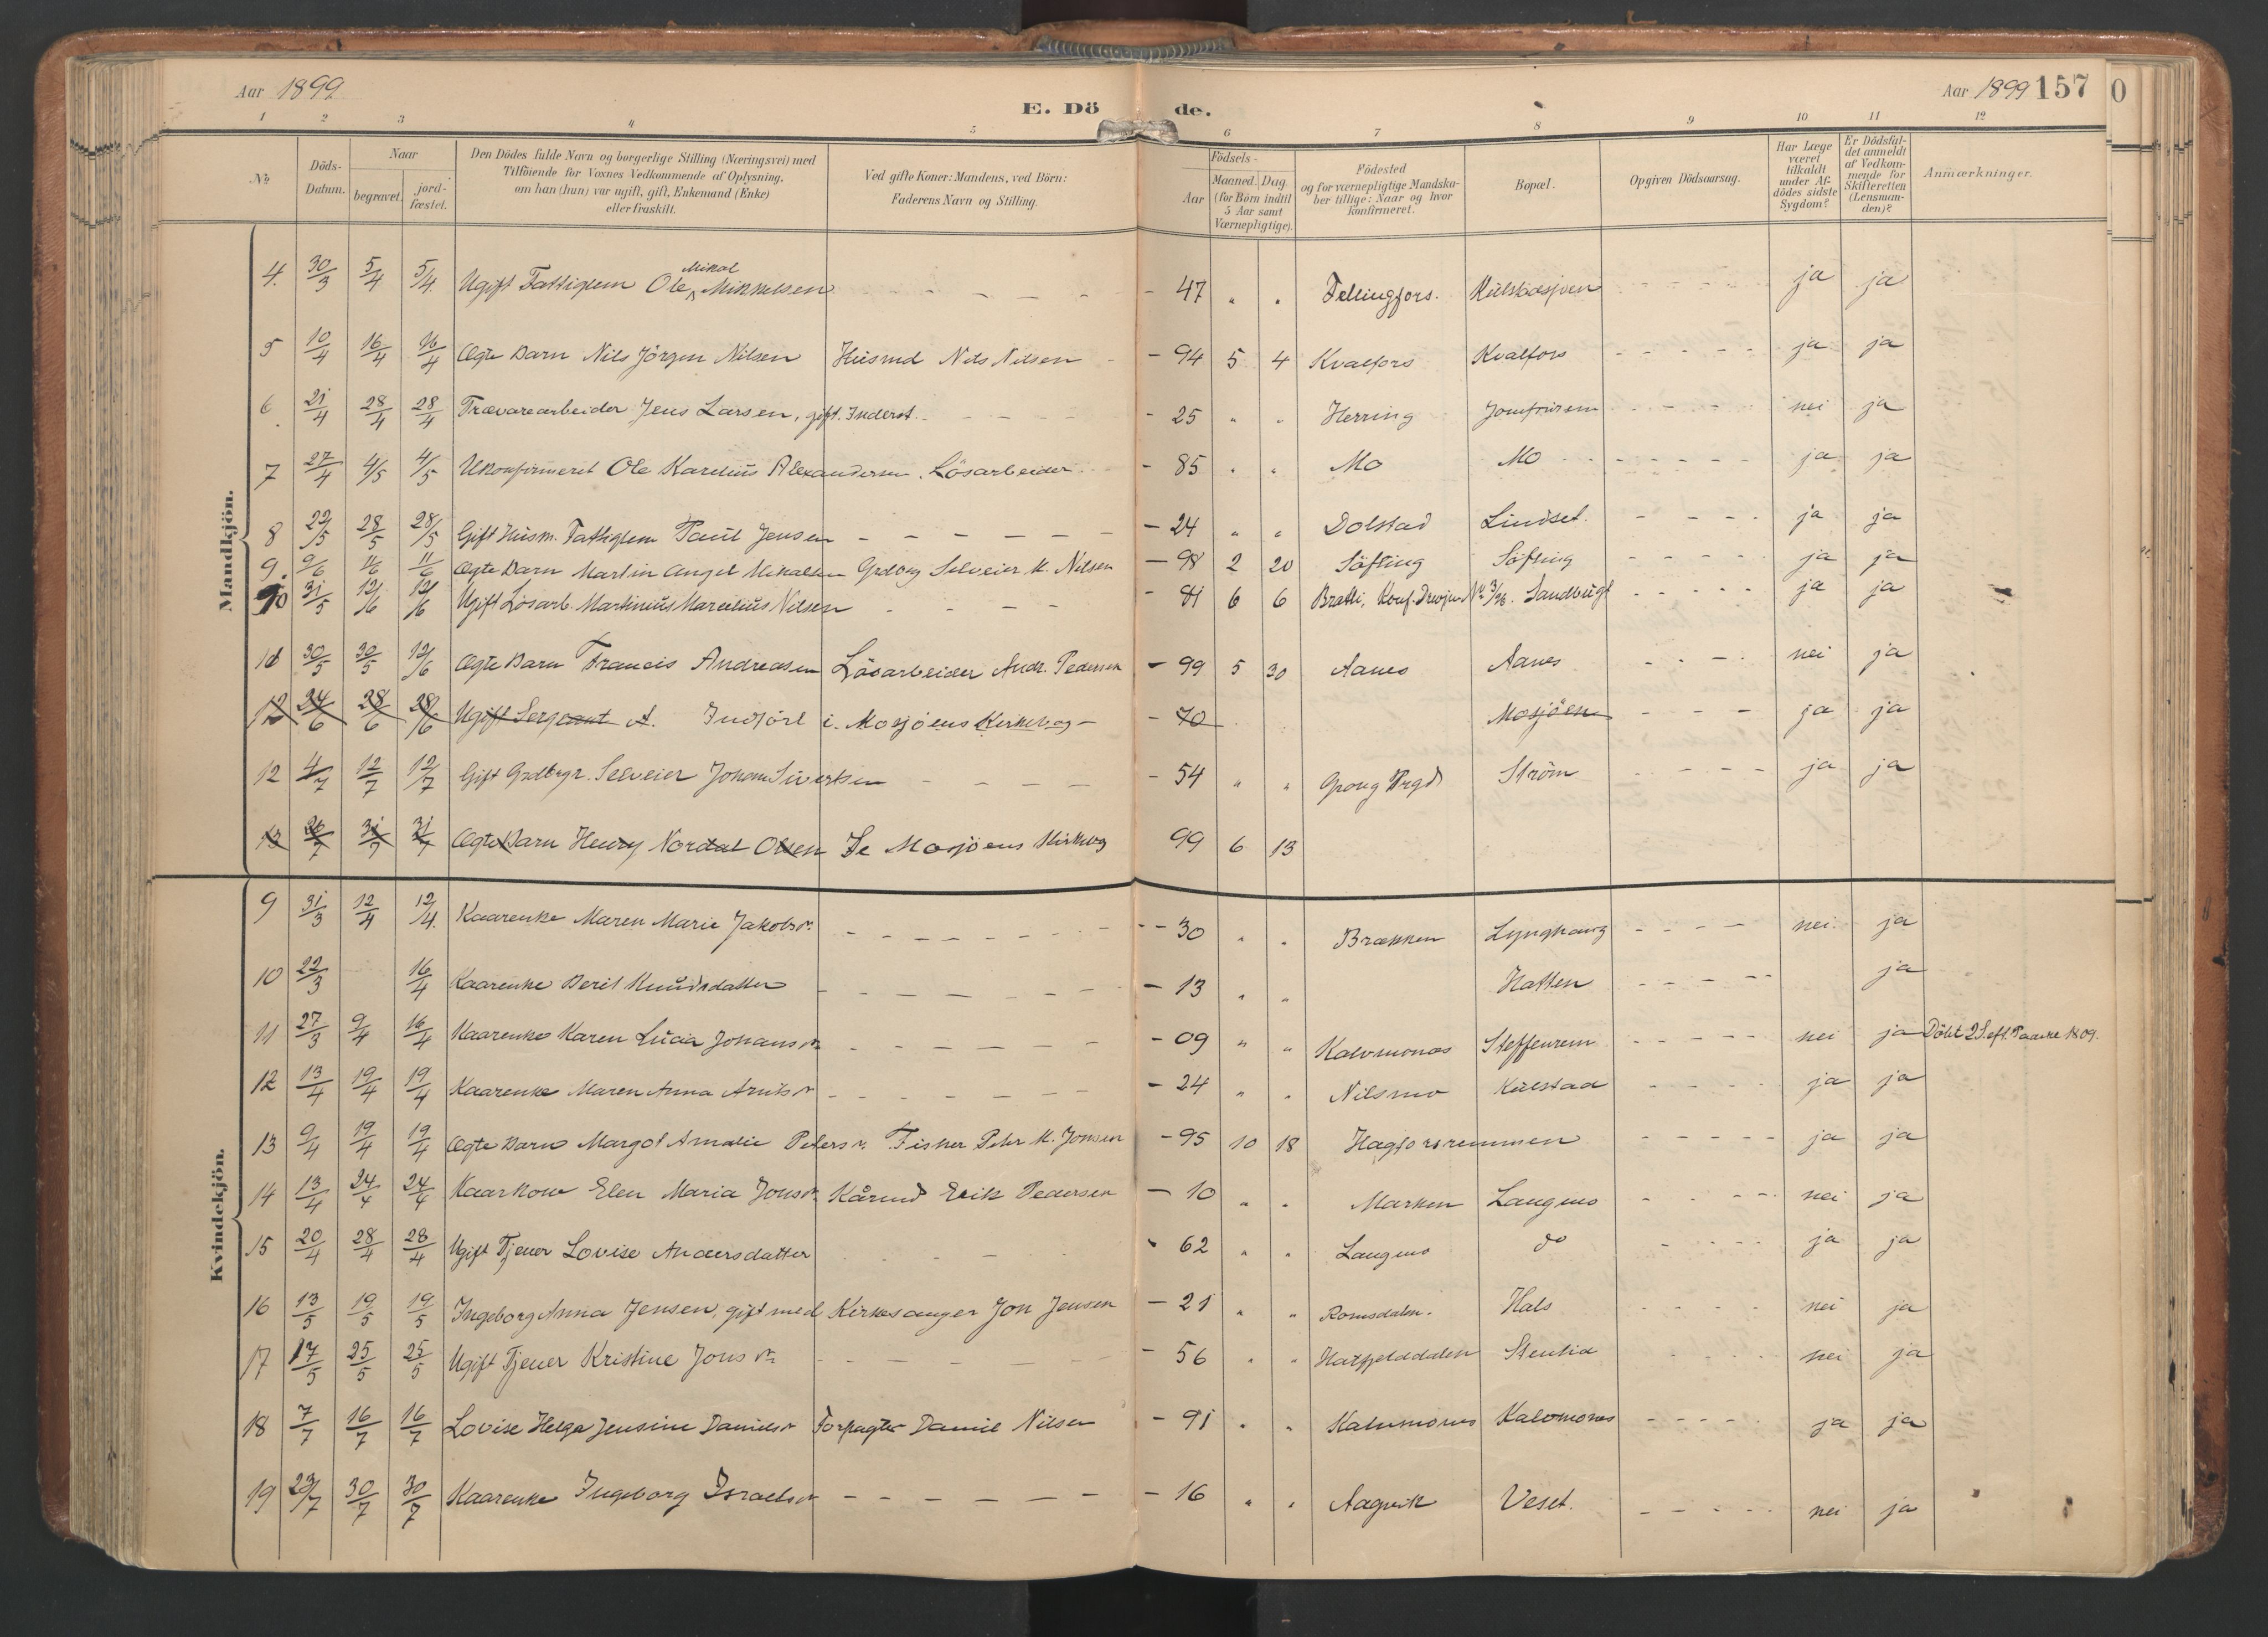 Aar 1899
E. Döde.
Aar 1899 157
0
1 2 3 4 5 6 7 8 9 10 11 12
№ Döds-Datum. Naar begravet. jord-fæstet. Den Dödes fulde Navn og borgerlige Stilling (Næringsvei) med Tilföiende for Voxnes Vedkommende af Oplysning, om han (hun) var ugift, gift, Enkemand (Enke) eller fraskilt. Ved gifte Koner: Mandens, ved Börn: Faderens Navn og Stilling. Födsels- Aar Maaned. Dag. (for Börn indtil 5 Aar samt Værnepligtige). Födested og for værnepligtige Mandskaber tillige: Naar og hvor konfirmeret. Bopæl. Opgiven Dödsaarsag. Har Læge været tilkaldt under Afdödes sidste Sygdom? Er Dödsfaldet anmeldt af Vedkommende for Skifteretten (Lensmanden)? Anmærkninger.
Mandkjön.
4. 30/3 5/4 5/4. Ugift Fattiglem Ole Mikal Mikkelsen - 47 " " Fellingfors. Kulstadsjöen ja ja
5 10/4 16/4 16/4 Ægte Barn Nils Jörgen Nilsen Husmd Nils Nilsen - 94 5 4 Kvalfors Kvalfors ja ja
6 21/4 28/4 28/4 Trævarearbeider Jens Larsen, gift. Inderst. - 25 " " Herring Jomfrurem nei ja
7 27/4 4/5 4/5 Ukonfirmeret Ole Karelius Alexandersen. Lösarbeider - 85 " " Mo Mo ja ja
8 22/5 28/5 28/5 Gift Husm. Fattiglem Paul Jensen - 24 " " Dolstad Lindset. ja ja
9. 9/6 11/6 11/6 Ægte Barn Martin Angel Mikalsen Grdbrg Selveier M. Nilsen - 98 2 20 Söfting Söfting ja ja
10 31/5 12/6 12/6 Ugift Lösarb. Martinius Marcelius Nilsen - 81 6 6 Bratli, Konf. Drevjen Sandbugt ja ja
11 30/5 30/5 12/6 Ægte Barn Francis Andreasen Lösarbeider Andr. Pedersen - 99 5 30 Aanes Aanes nei ja
12 24/6 28/6 28/6 Ugift Sergeant A. Indförl i. Mosjöens Kirkebog - 70 Mosjöen ja ja
12 4/7 12/7 12/7 Gift Grdbrgr. Selveier Johan Sivertsen - 54 " " Grong Prgd Ström ja ja
13 26/7 31/7 31/7 Ægte Barn Henry Nordal Olsen Se Mosjöens Kirkebog 99 6 13
Kvindekjön.
9 31/3 12/4 12/4. Kaarenke Maren Marie Jakobsdr. - 30 " " Brækken Lynghaug nei ja
10 22/3 16/4 Kaarenke Berit Knudsdatter - 13 " " Hatten ja
11 27/3 9/4 16/4 Kaarenke Karen Lucia Johansdr - 09 " " Kalvmonas Steffenrem nei ja Döbt 2 S. eft. Paaske 1809.
12 13/4 19/4 19/4 Kaarenke Maren Anna Arntsdr - 24 " " Nilsmo Kulstad ja ja
13 9/4 19/4 19/4 Ægte Barn Margot Amalie Petersdr. Fisker Petr M. Jonsen - 95 10 18 Hagforsremmen ja ja
14 13/4 24/4 24/4 Kaarkone Elen Maria Jonsdr. Kårmd Erik Pedersen - 10 " " Marken Langmo nei ja
15 20/4 28/4 28/4 Ugift Tjener Lovise Andersdatter - 62 " " Langmo do ja ja
16 13/5 19/5 19/5 Ingeborg Anna Jensen, gift med Kirkesanger Jon Jensen - 21 " " Romsdalen. Hals nei ja
17 17/5 25/5 25/5 Ugift Tjener Kristine Jonsdr - 56 " " Hatfjelddalen Stenlia nei ja
18 7/7 16/7 16/7 Lovise Helga Jensine Danielsdr Forpagter Daniel Nilsen - 91 " " Kalvmonas Kalvmones ja ja
19 23/7 30/7 30/7 Kaarenke Ingeborg Israelsdr - 16 " " Aagvik Veset. nei ja